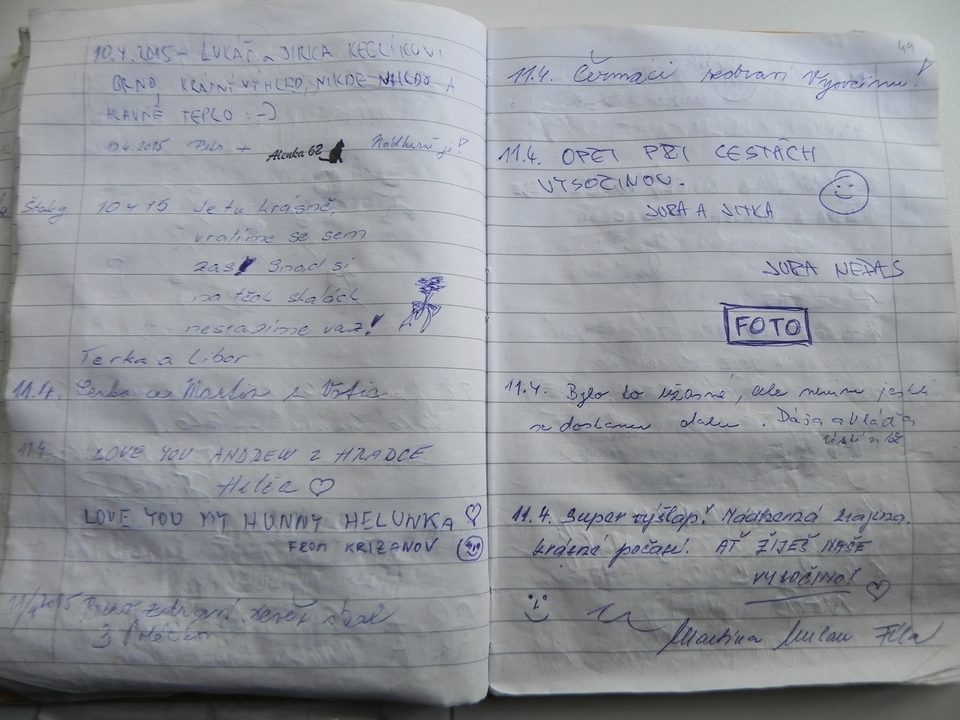 10.4.2015 - LUKÁŠ a JIRKA
BRNO, KRÁSNÝ VÝHLED, NIKDE NIKDO A
HLAVNĚ TEPLO :-)
10.4.2015 Petr + Alenka 62 Nádherné je!
10 4 15. Je tu krásně,
vratíme se sem
zas! Snad si
na těch skalách
nesrazíme vaz!
Terka a Libor
11.4. Lenka a Martin z Votic
11.4. LOVE YOU ANDREW Z HRADCE
Helča ♡
LOVE YOU MY HUNNY HELUNKA ♡
FROM KRIZANOV
11/4 2015
49
11.4. Čermáci zdraví Vysočinu!
11.4. OPĚT PŘI CESTÁCH
VYSOČINOU.
JURA A JITKA
JURA NEPAS
FOTO
11.4. Bylo to úžasné, ale nevíme jestli
se dostaneme dolu. Dája a Vláďa
11.4. Super výšlap! Nádherná krajina.
krásné počasí. AŤ ŽIJEŠ NAŠE
VYSOČINO! ♡
Martina Milan Fíla